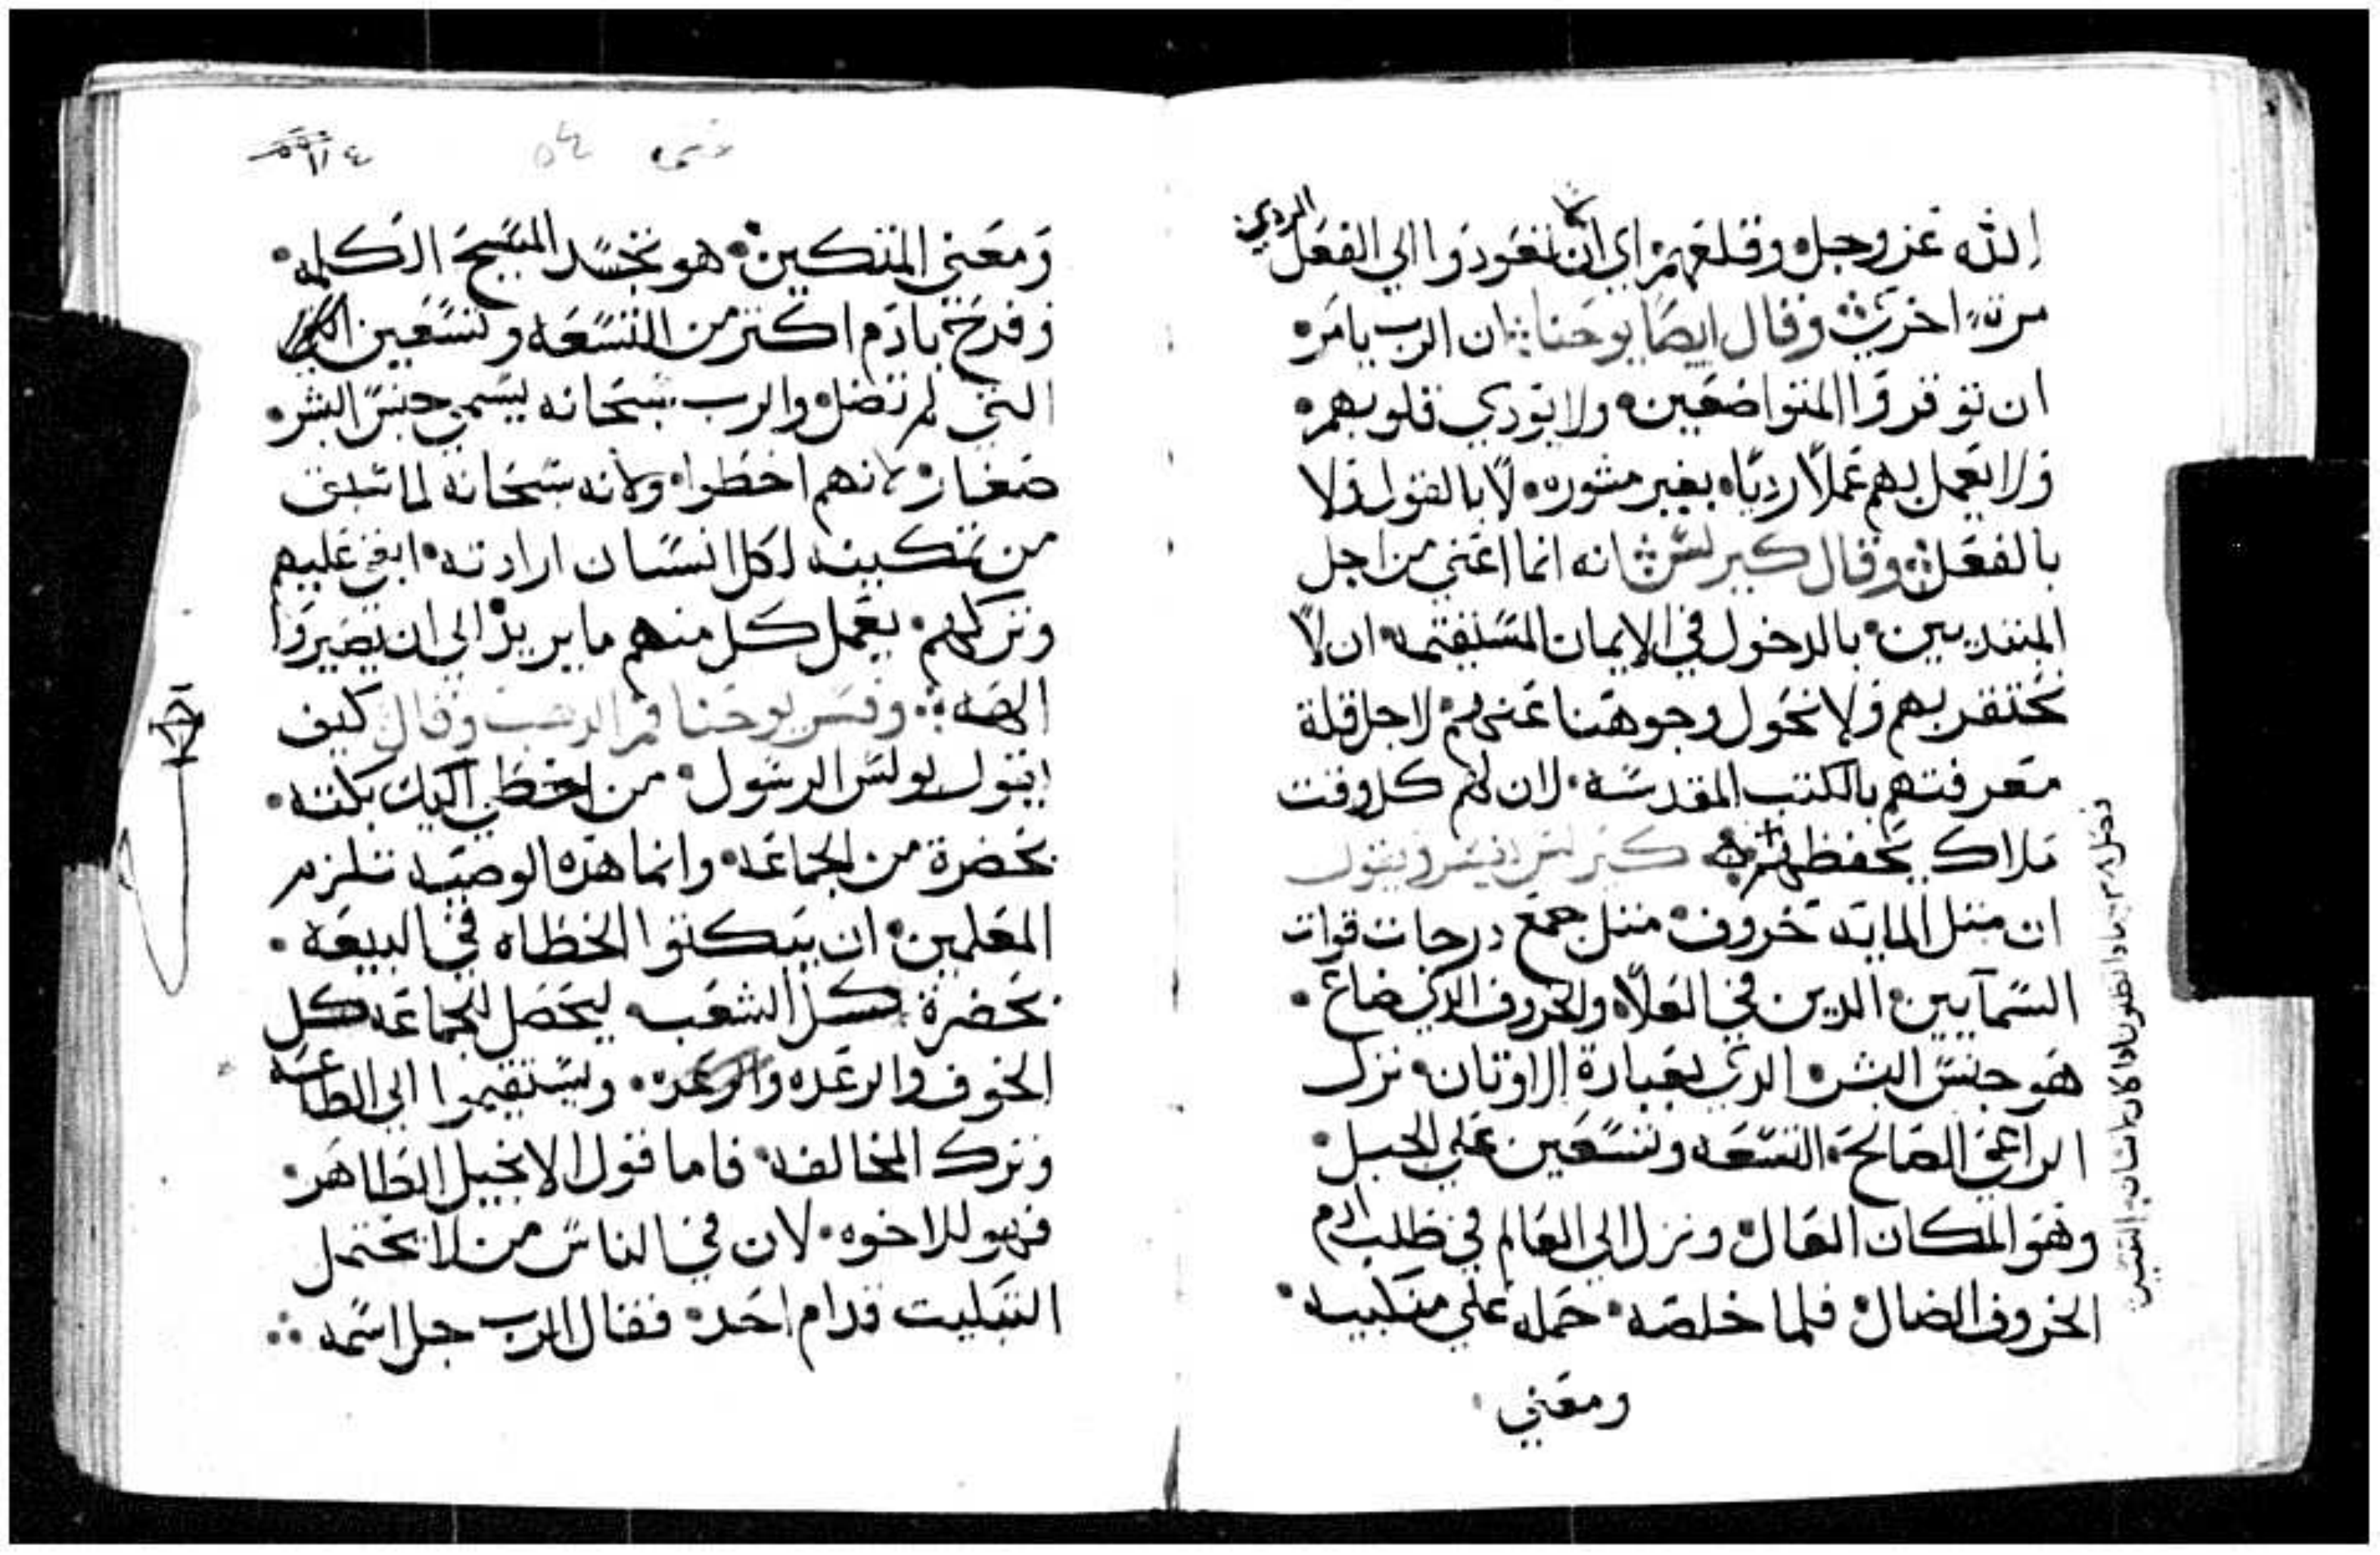 الله عز وجل وقلعهم اي ان لا تعودوا الي الفعل الردي
مرة اخري وقال ايضا يوحنا ان الرب يامره
ان توقروا المتواضعين ولا يودي قلوبهم
ولا يعمل بهم عملاً ردياه بغير مشوره لا بالقول ولا
بالفعل وقال كيرلس انه انما اعني من اجل
المبتديين بالدخول في الايمان المستقيمه ان لا
نحتقر بهم ولا نحول وجوهنا عنهم لاجل قلة
معرفتهم بالكتب المقدسه لان لهم كل وقت
ملاك يحفظهم كيرلس يفسر ويقول
ان مثل الماية خروف مثل جمع درجات قوات
السمآيين الدين في العلاه والخروف الدي ضاع
هو جنس البشر الدي بعبادة الاوتان نزل
الراعي الصالح التسعه وتسعين علي الجبل
وهو المكان العال ونزل الي العالم في طلب ادم
الخروف الضال فلما خلصه حمله علي منكبيه
ومعني
ومعني المنكبين هو تجسد المسيح الكلمه
وفرح بادم اكتر من التسعه وتسعين
التي لم تضل والرب سبحانه يسمي جنس البشر
صغار لانهم اخطوا ولانه سبحانه لما سبق
من تمكينه لكل انسان ارادته ابقي عليهم
وتركهم يعمل كل منهم ما يريد الي ان يصيروا
اليه وفسر يوحنا فم الدهب وقال كيف
يقول بولس الرسول من اخطي اليك بكته
بحضرة من الجماعه وانما هده الوصيه تلزم
المعلمين ان يبكتوا الخطاه في البيعه
بحضرة كل الشعب ليحصل لجماعه كل
الخوف والرعده ويستقيموا الي الطاعه
وترك المخالفه فاما قول الانجيل الطاهر
فهو للاخوه لان في الناس من لا يحتمل
التبكيت قدام احد فقال الرب جل اسمه